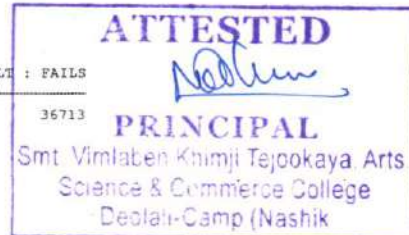 ATTESTED
LT : FAILS
36713
PRINCIPAL
Smt. Vimlaben Khimji Tejookaya. Arts
Science & Commerce College
Deolali-Camp (Nashik